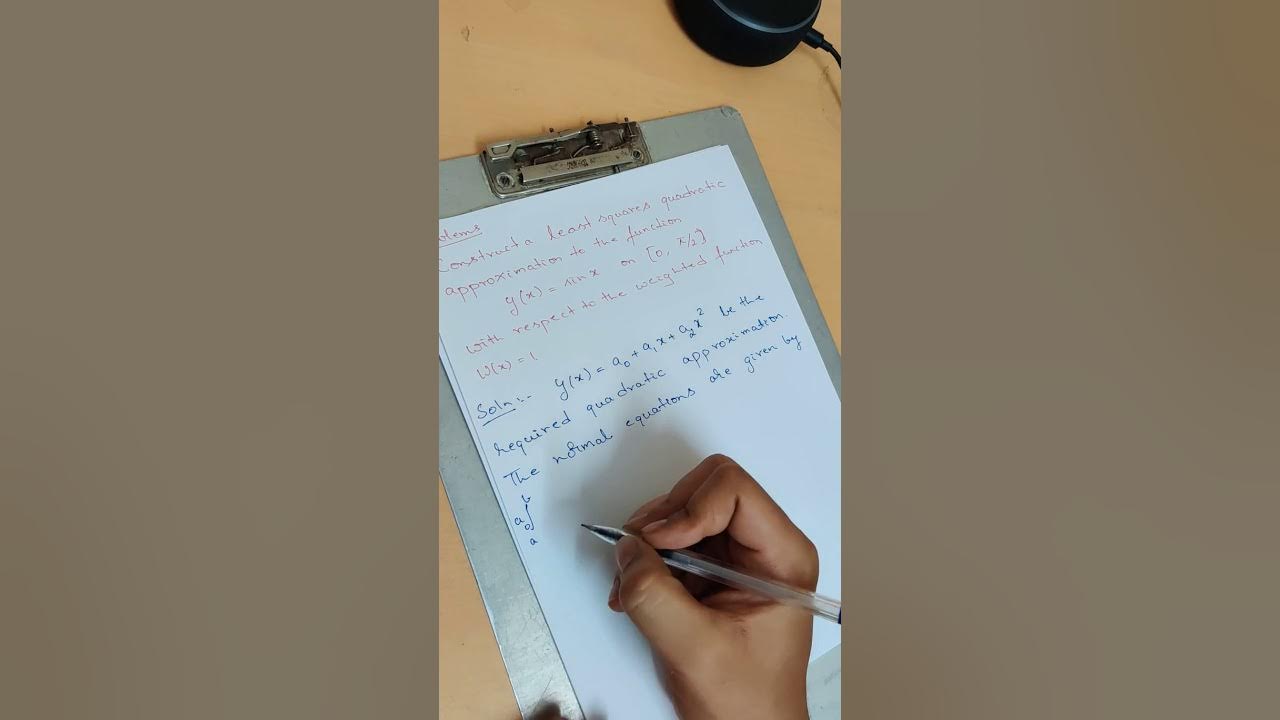 Construct a least squares quadratic
approximation to the function
y(x) = sin x on [0, π/2]
with respect to the weighted function
W(x) = 1.
Soln :- y(x) = a₀ + a₁x + a₂x² be the
required quadratic approximation.
The normal equations are given by
a₀ ∫ₐᵇ